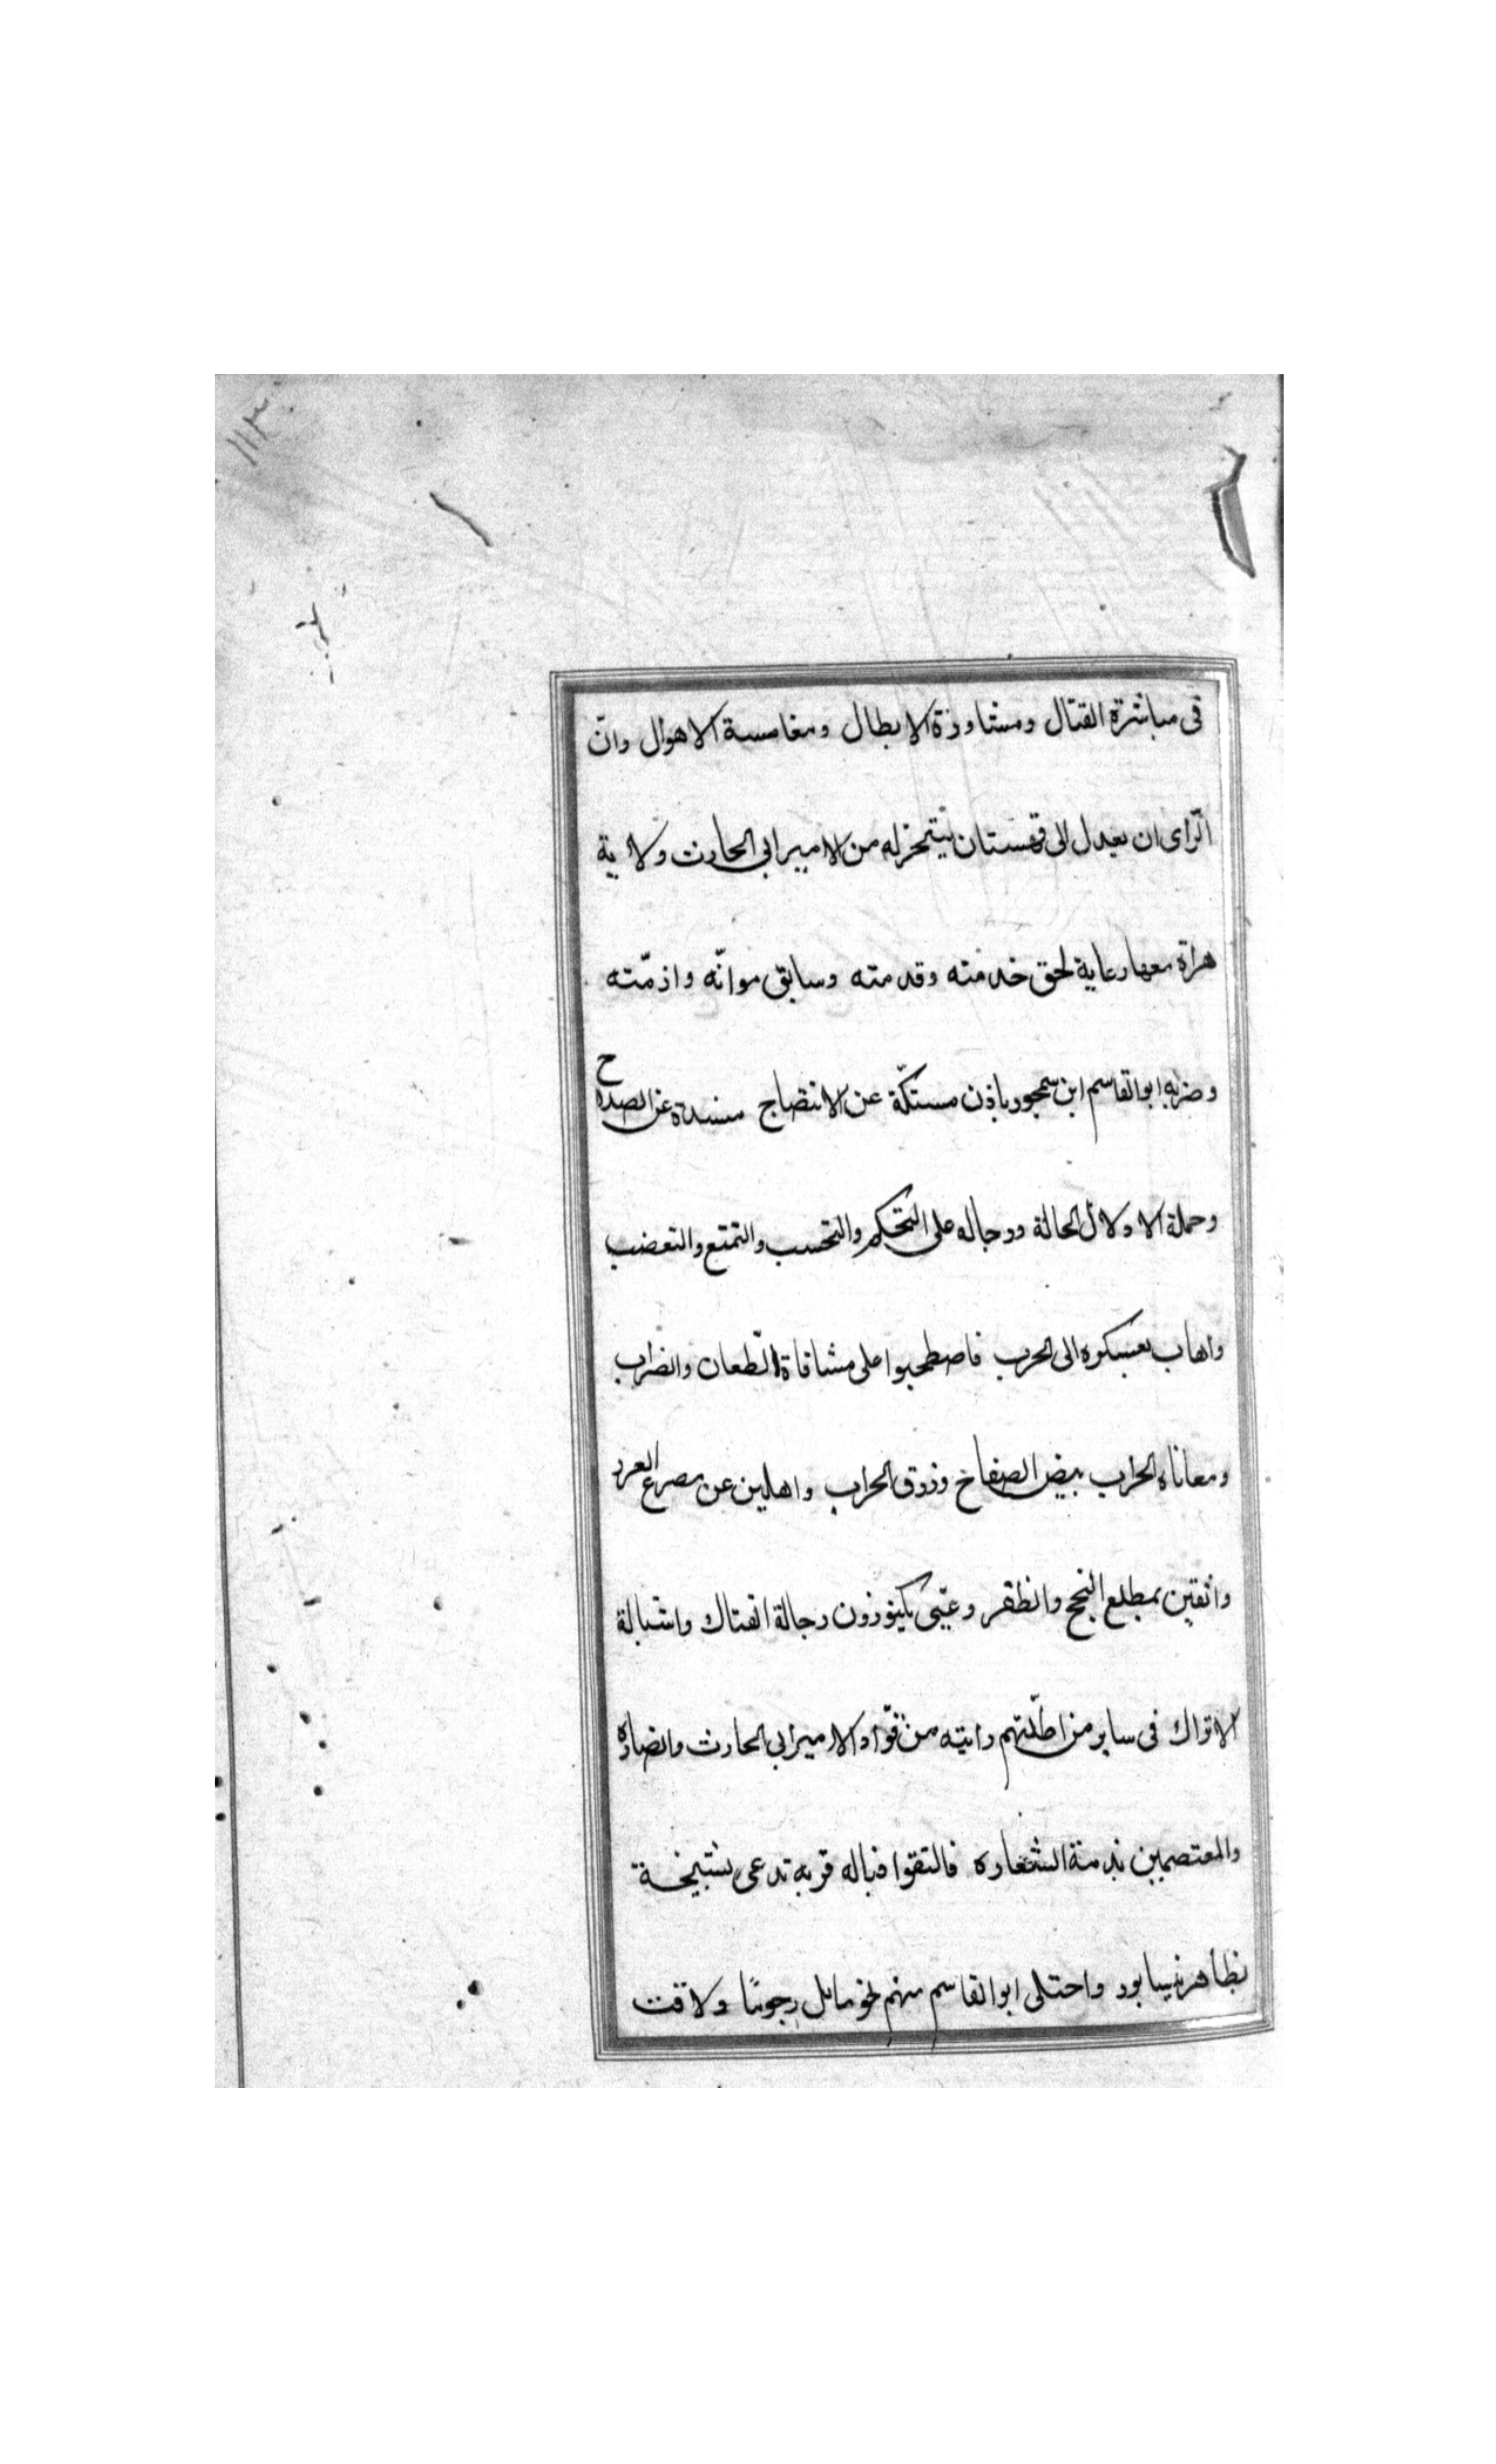 ١١٣
فى مباشرة القتال ومشاورة الابطال ومغامسة الاهوال وانّ
الرّاى ان يعدل الى قهستان يتنجز له من الامير ابى الحارث ولاية
هراة معها رعاية لحق خدمته وقدمته وسابق مواتّه واذمّته
وضربه ابو القاسم ابن سمجور باذن مستكّة عن الانتصاح منسدة عن الصلاح
وحملة الادلال الحالة ورجاله على التحكم والتحسب والتمتع والتعضب
واهاب بعسكره الى الحرب فاصطحبوا على مشاقاة الطّعان والضراب
ومعاناة الحراب ببيض الصفاح وزرق الحراب واهلين عن مصرع الغرر
واثقين بمطلع النجح والظفر وعبّى بكتوزون رجالة الفتاك واشبالة
الاتراك فى ساير من اظلّتهم رايته من قوّاد الامير ابى الحارث وانصاره
والمعتصمين بذمة الشعاره فالتقوا قباله قريه تدعى بشنجة
بظاهر نيسابور واحتلى ابو القاسم منهم رجوبًا ولاقت